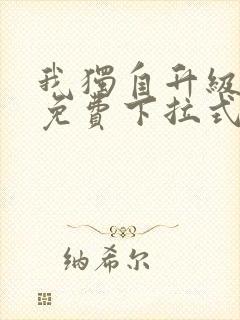 我獨自升級
免費下拉式
纳希尔